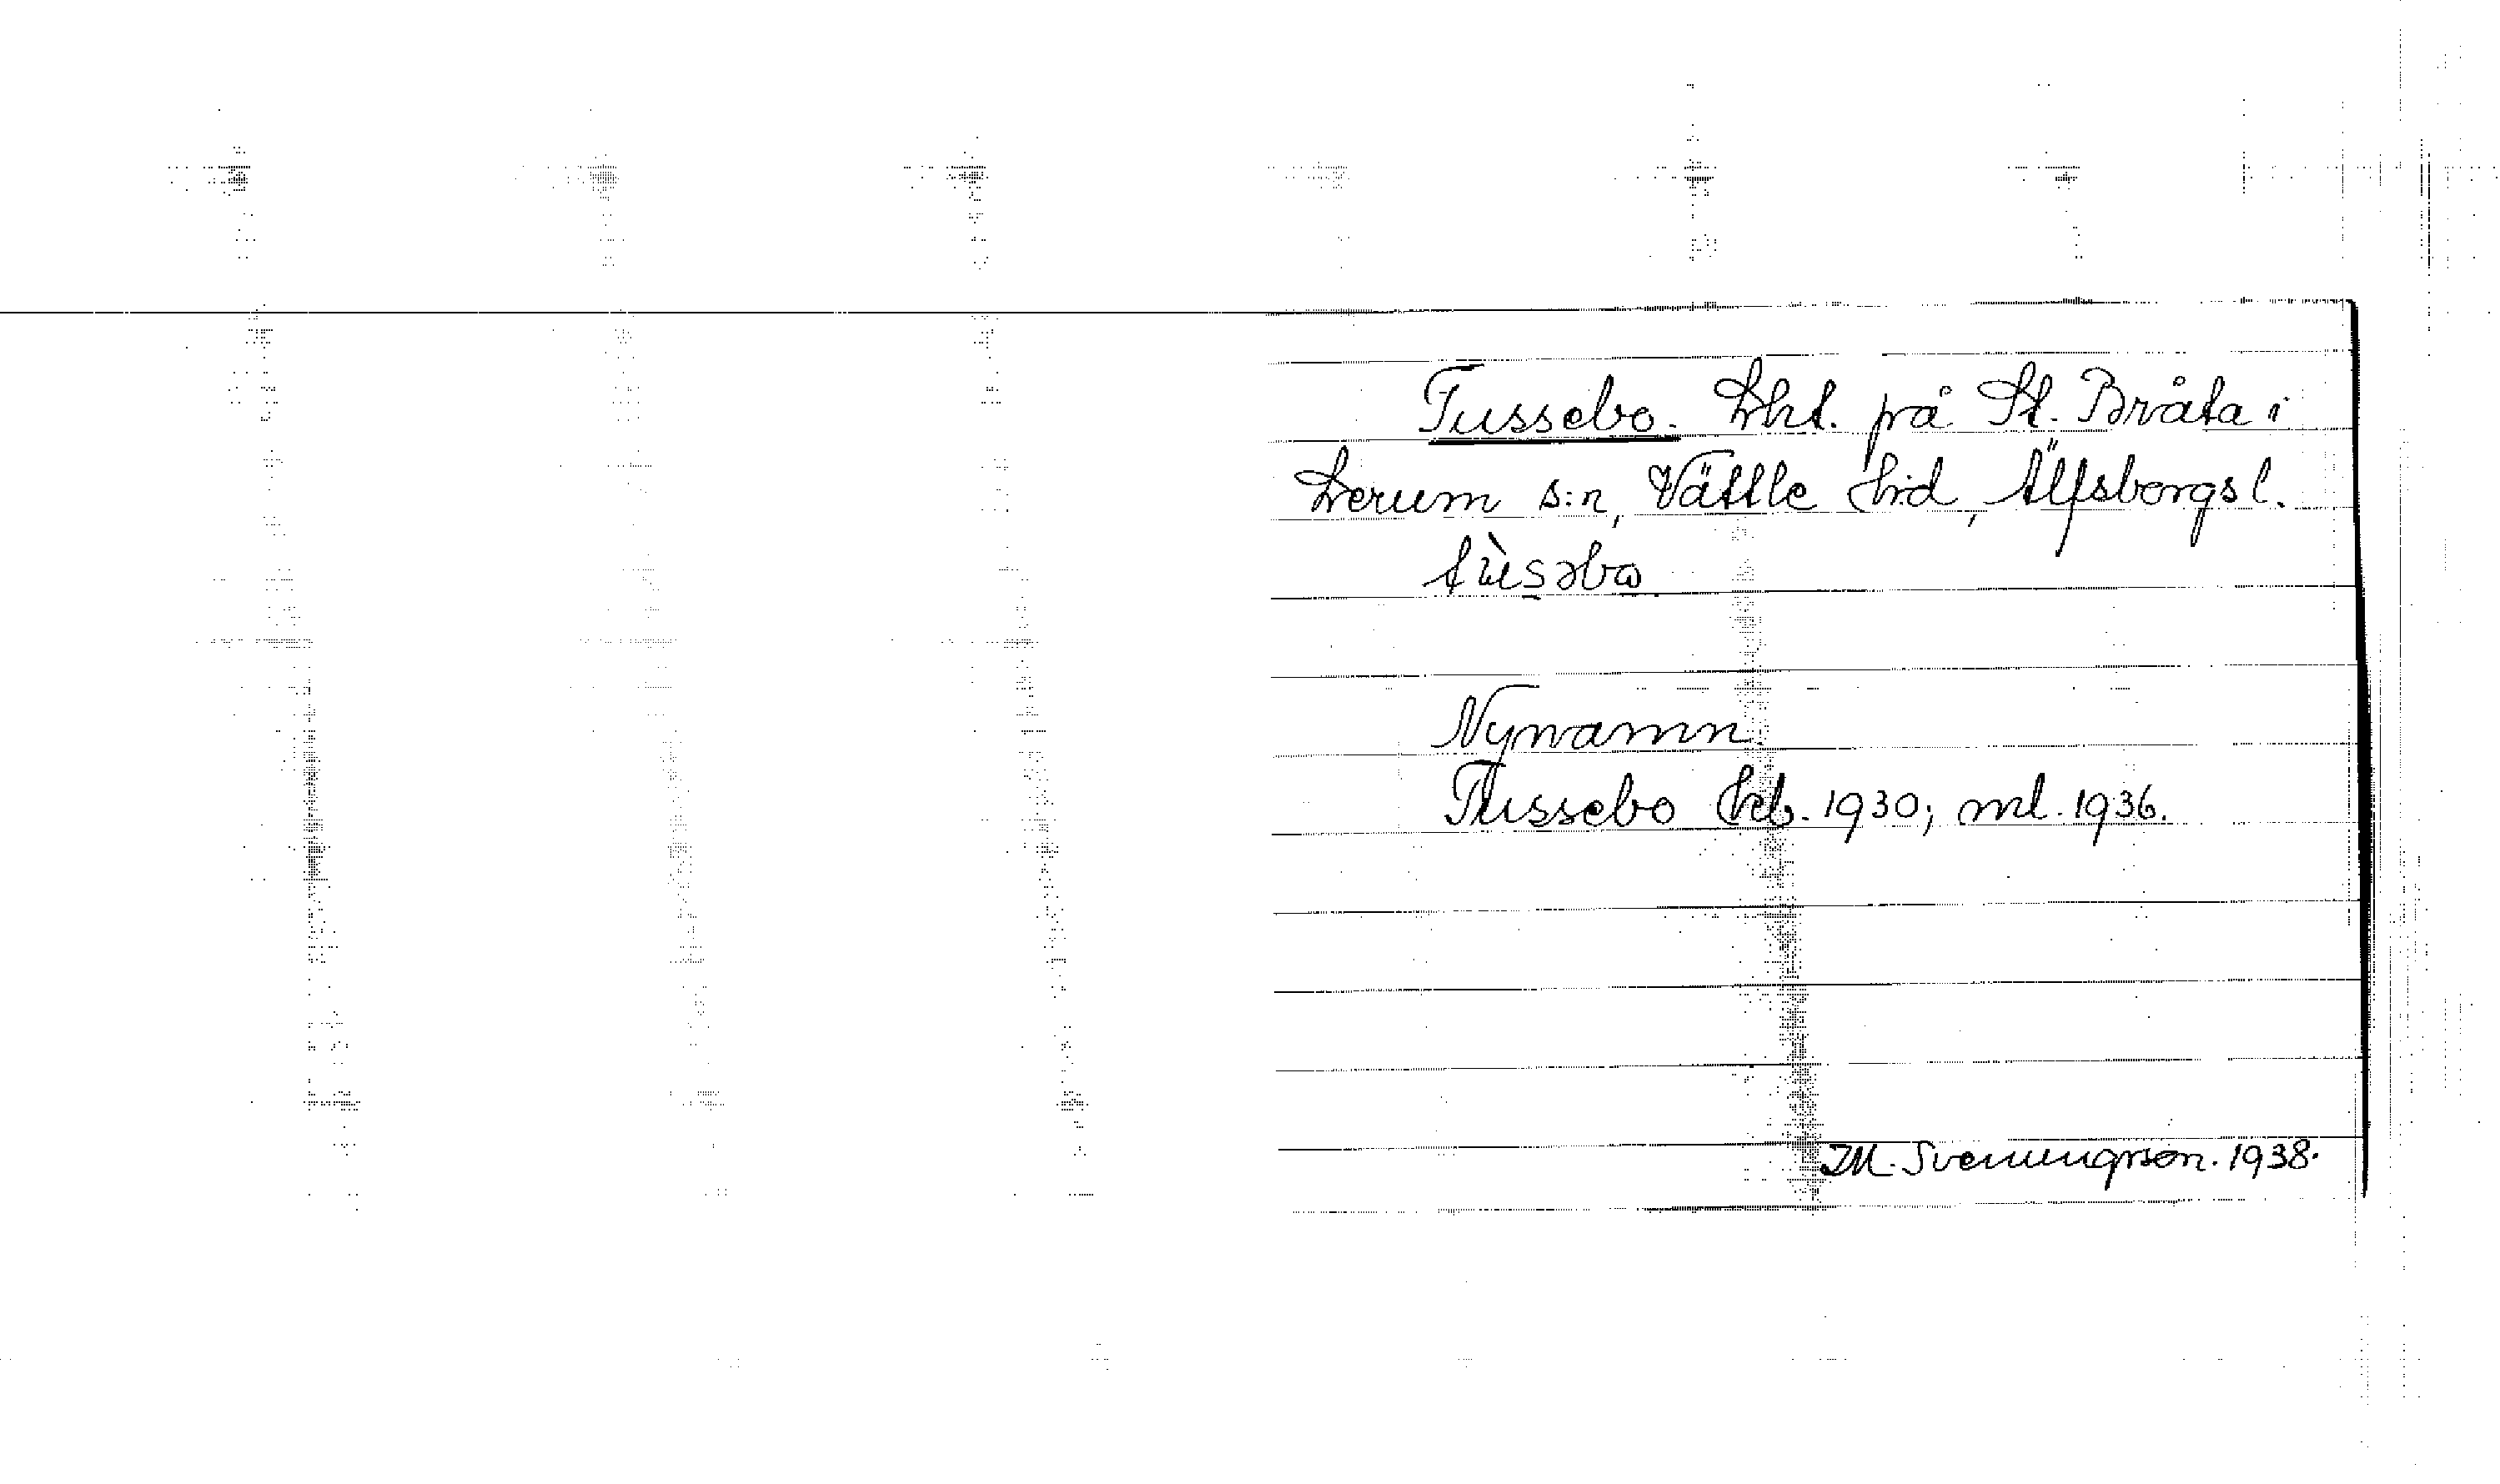 Tussebo. Lht. på St. Bråta i
Lerum s:n, Vättle hd, Älfsborgs l.
tùs̱əbɷ
Nynamn.
Tussebo hfb. 1930; ml. 1936.
M. Svenungsson. 1938.